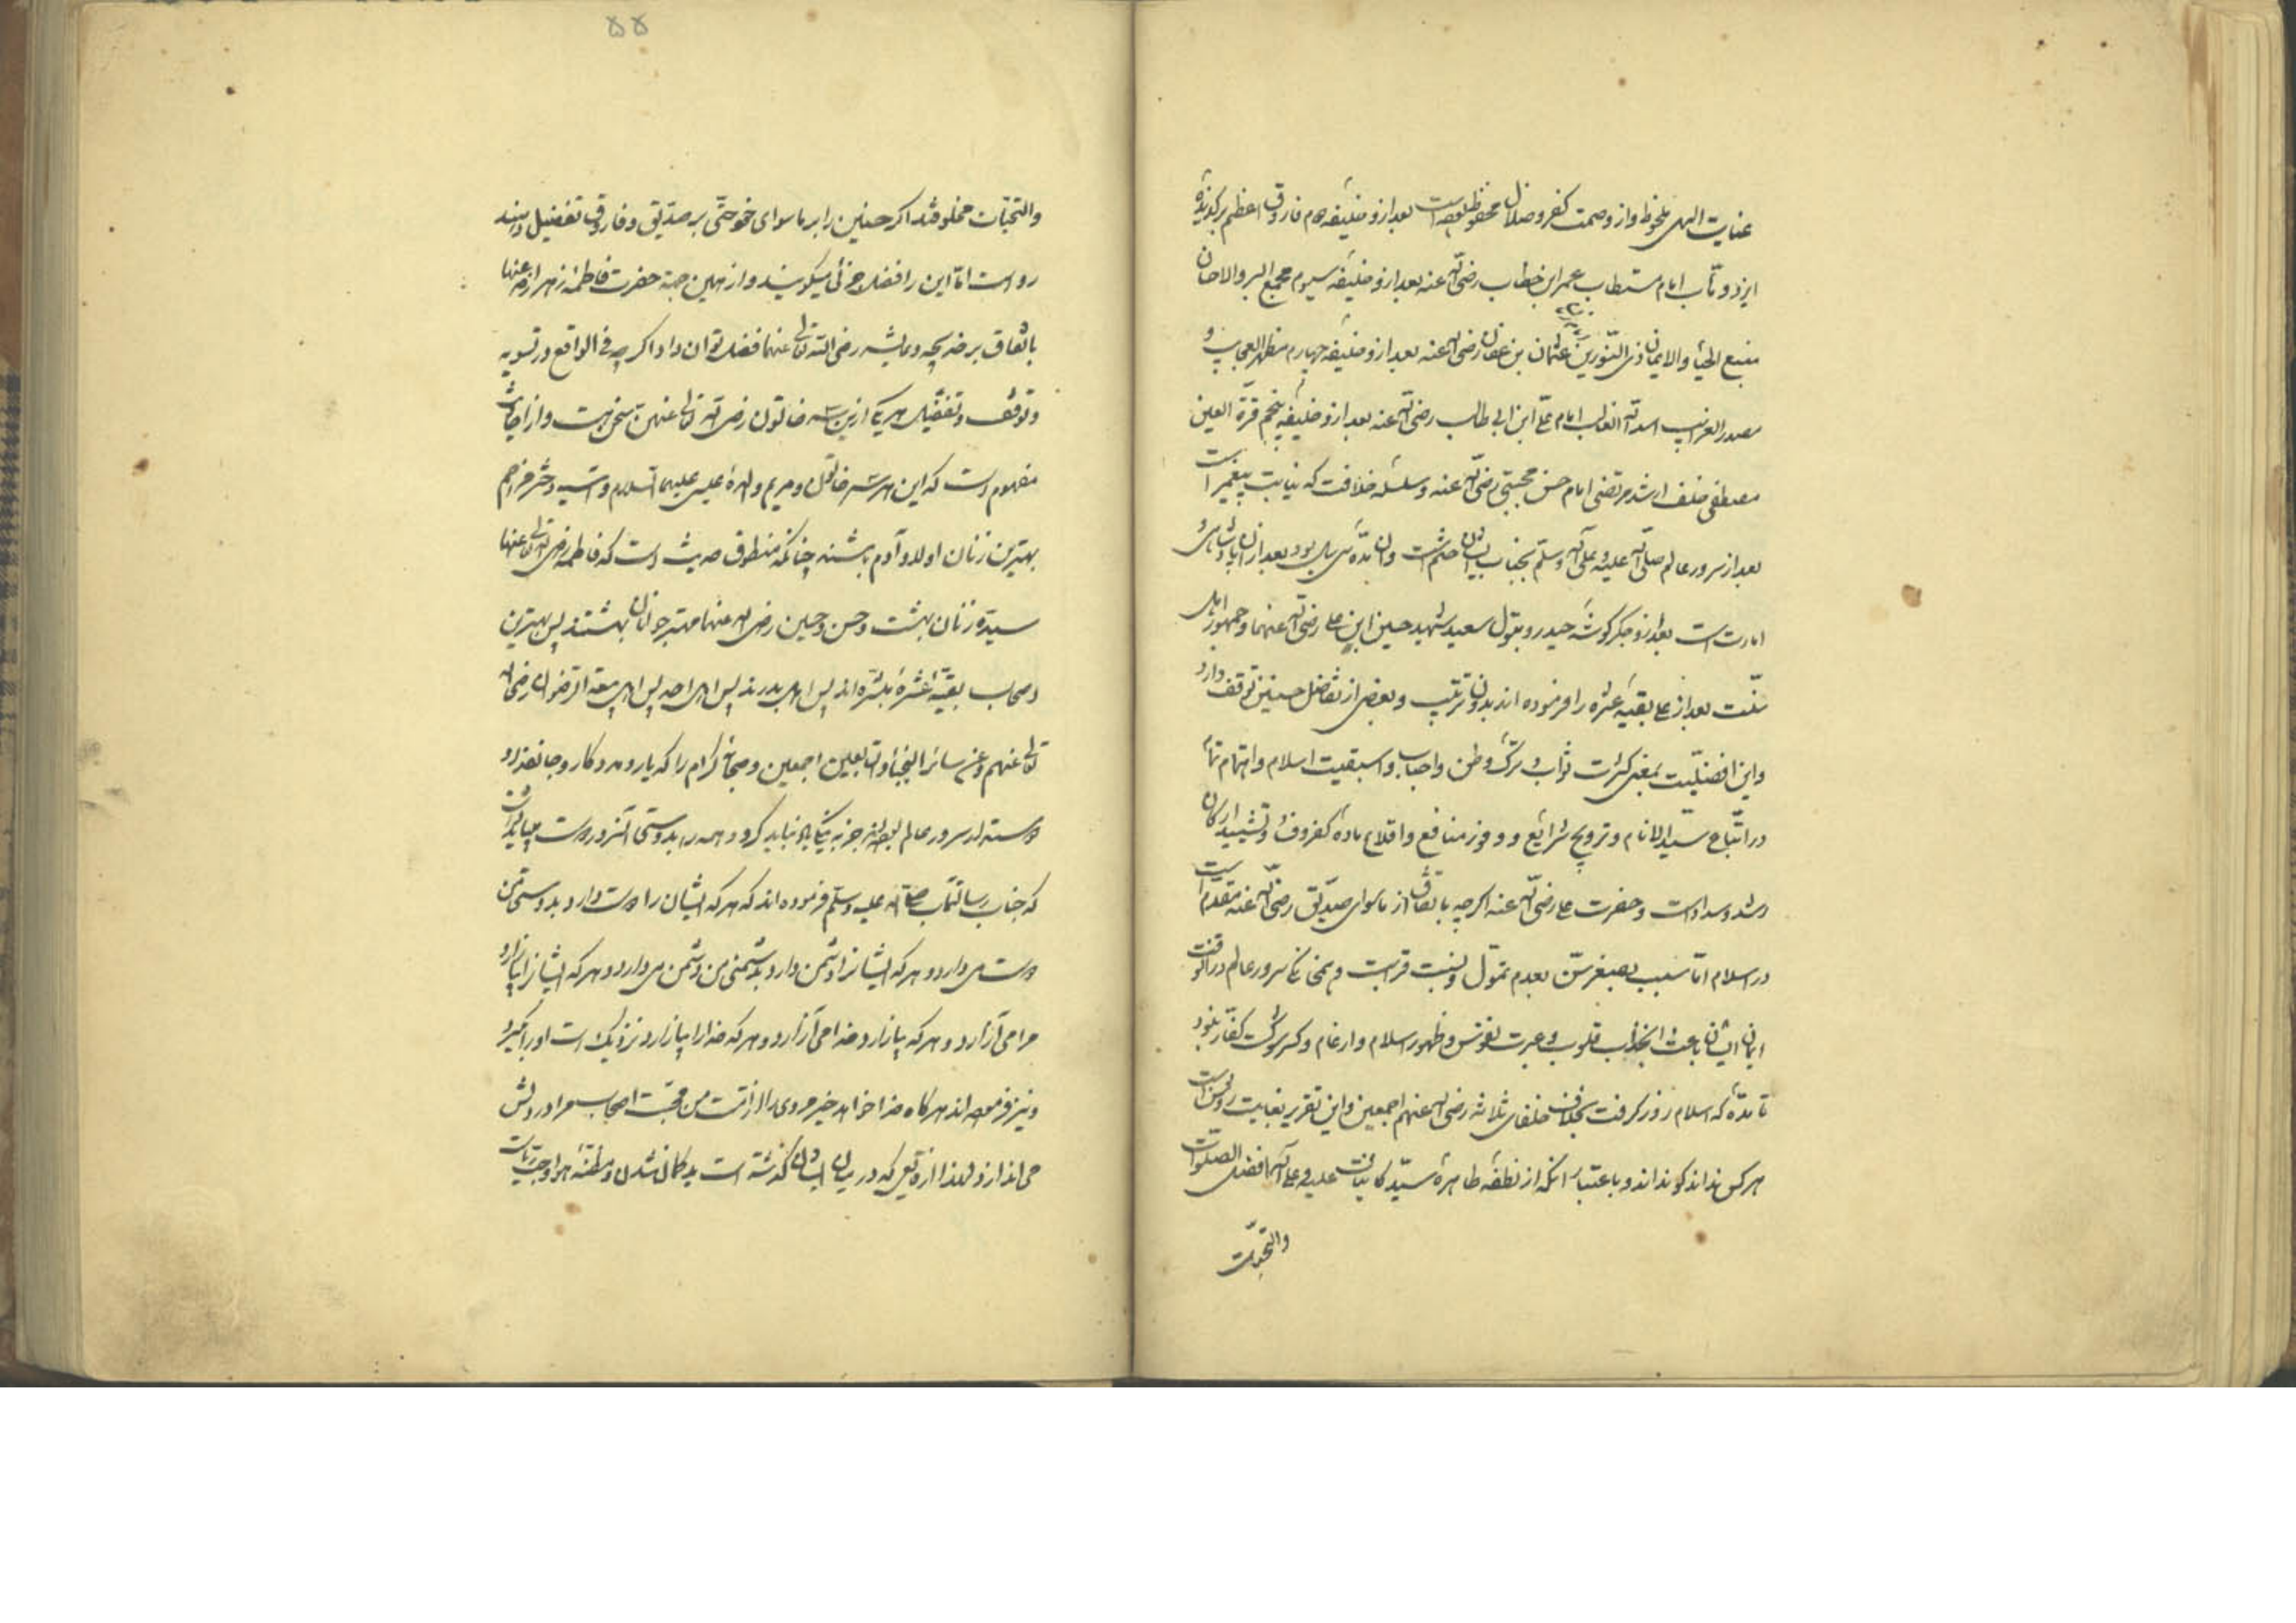 عنایت الهی ملحوظ واز وصمت کفر وضلال محفوظ بوده است بعد ازو خلیفه دوم فاروق اعظم برکزیدهٔ
ایزد وتاب امام مستطاب عمر ابن خطاب رضی الله عنه بعد ازو خلیفه سیوم مجمع البر والاحسان
منبع الحیاء والایمان ذی النورین عثمان بن عفان رضی الله عنه بعد ازو خلیفه چهارم مظهر العجایب و
مصدر الغرایب اسد الله الغالب امام علی ابن ابی طالب رضی الله عنه بعد ازو خلیفه پنجم قرة العین
مصطفی خلف ارشد مرتضی امام حسن مجتبی رضی الله عنه وسلسله خلافت که نیابت پیغمبر است
بعد از سرور عالم صلی الله علیه وعلی آله وسلم بجناب ایشان ختم شت وان مدة سی سال بود بعد ازان پادشاهی و
امارت است بعد ازو جکر کوشهٔ حیدر وبتول سعید شهید حسین ابن علی رضی الله عنهما وجمهور اهل
سنت بعد از علی بقیه عشره را فرموده اند بدون ترتیب وبعضی از تفاضل حسنین توقف دارد
واین افضلیت بمعنی کثرت ثواب و ترک وطن واحباب واسبقیت اسلام واهتمام تمام
در اتباع سید الانام وترویج شرایع و وفور منافع واقلاع مادهٔ کفر وفـ وتشیید ارکان
رشد وسداد است وحضرت علی رضی الله عنه اکرچه باتفاق از ماسوای صدیق رضی الله عنه مقدم است
در اسلام اما بسبب صغر سن بعدم تمول ونسبت قرابت و همخانکی سرور عالم در انوقت
ایمان ایشان باعث انجذاب قلوب و عبرت نفوس وظهور اسلام وارغام وکسر شوکت کفار نبود
تا مدة که اسلام زور کرفت بخلاف خلفای ثلاثه رضی الله عنهم اجمعین واین تقریر بغایت روشن است
هرکس نداند کو نداند وباعتبار انکه از نطفهٔ طاهرهٔ سید کاینات علیه وعلی آله افضل الصلوات
والتحیات
۵۵
والتحیات مخلوقند اکر حسنین را بر ماسوای خود حتی بر صدیق وفاروق تفضیل دهند
رواست اما این را فضل جزئی میکویند واز همین جهة حضرت فاطمه زهرا رضی الله عنها
باتفاق بر خدیجه وعایشه رضی الله تعالی عنهما فضل توان داد اکرچه فی الواقع در تسویه
وتوقف وتفضیل هر یک ازین سه خاتون رضی الله تعالی عنهن سخن هست واز احادیث
مفهوم است که این هر سه خاتون ومریم والدهٔ عیسی علیهما السلام واسیه دختر مزاحم
بهترین زنان اولاد آدم باشند چنانکه منطوق حدیث است که فاطمه رضی الله تعالی عنها
سیدة زنان بهشت وحسن وحسین رضی الله عنهما مهتر جوانان بهشتند پس بهترین
اصحاب بقیه عشرهٔ مبشره اند پس اهل بدرند پس اهل احد پس اهل بیعة الرضوان رضی الله
تعالی عنهم وعن سائر النجباء والتابعین اجمعین وصحابهٔ کرام را که یار ومددکار وجانفدا و
دوستدار سرور عالم بوده اند جز به نیکی یاد نباید کرد وهمه را بدوستی آنسرور دوست باید داشت
که جناب رسالتمآب صلی الله علیه وسلم فرموده اند که هرکه ایشان را دوست دارد بدوستی من
دوست می دارد وهرکه ایشانرا دشمن دارد بدشمنی من دشمن می دارد وهرکه ایشانرا بیازارد
مرا می آزارد وهرکه مرا بیازارد خدا می آزارد وهرکه خدا را بیازارد نزدیک است او را بکیرد
ونیز فرموده اند هرکاه خدا خواهد خیر مردی را از امت من محبت اصحاب مرا در دلش
می اندازد ولهذا از وقایعی که در میان ایشان کذشته است بدکمان نشدن ومظنهٔ هوا وحب ریاست